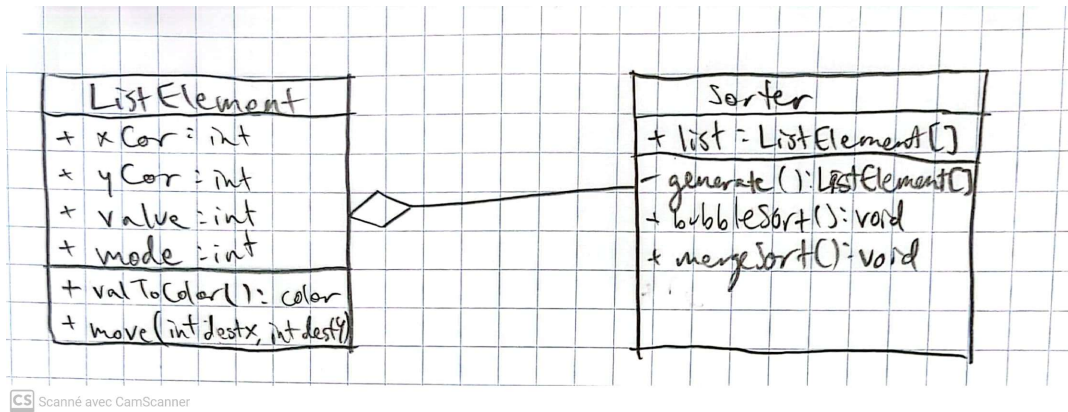 ListElement
+ xCor : int
+ yCor : int
+ value : int
+ mode : int
+ valToColor() : color
+ move(int destx, int destY)
Sorter
+ list : ListElement[]
- generate() : ListElement[]
+ bubbleSort() : void
+ mergeSort() : void
CS Scanné avec CamScanner